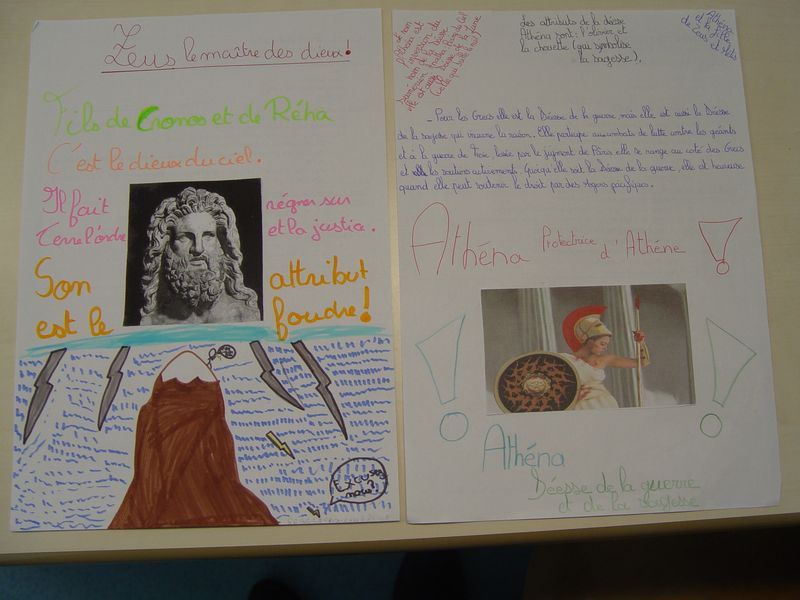 Zeus le maître des dieux!
Fils de Cronos et de Réha
C'est le dieux du ciel.
Il fait régner sur
Terre l'ordre et la justice.
Son attribut
est le foudre!
Excusez
nous?
des attributs de la déesse
Athéna sont: l'olivier et
la chouette (qui symbolise
la sagesse).
Athéna
est la fille
de Zeus et Métis
- Pour les Grecs elle est la Déesse de la guerre mais elle est aussi la Déesse
de la sagesse qui incarne la raison. Elle participe aux combats de lutte contre les géants
et à la guerre de Troie causée par le jugement de Pâris elle se range au coté des Grecs
et les soutiens activements. Quoiqu'elle soit la Déesse de la guerre, elle est heureuse
quand elle peut soutenir le droit par des moyens pacifiques.
Athéna Protectrice d'Athéne !
Athéna
Déesse de la guerre
et de la sagesse